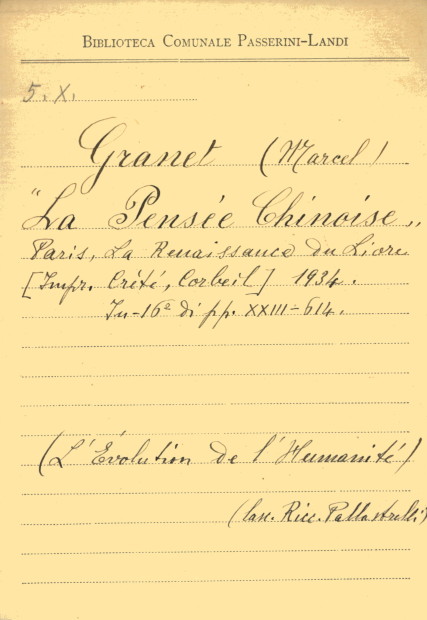 BIBLIOTECA COMUNALE PASSERINI-LANDI
5. X.
Granet (Marcel)
"La Pensée Chinoise"
Paris, La Renaissance du Livre
[Impr. Crété, Corbeil] 1934.
In-16º di pp. XXIII-614.
(L'Évolution de l'Humanité)
(Lasc. Ricc. Pallastrelli)